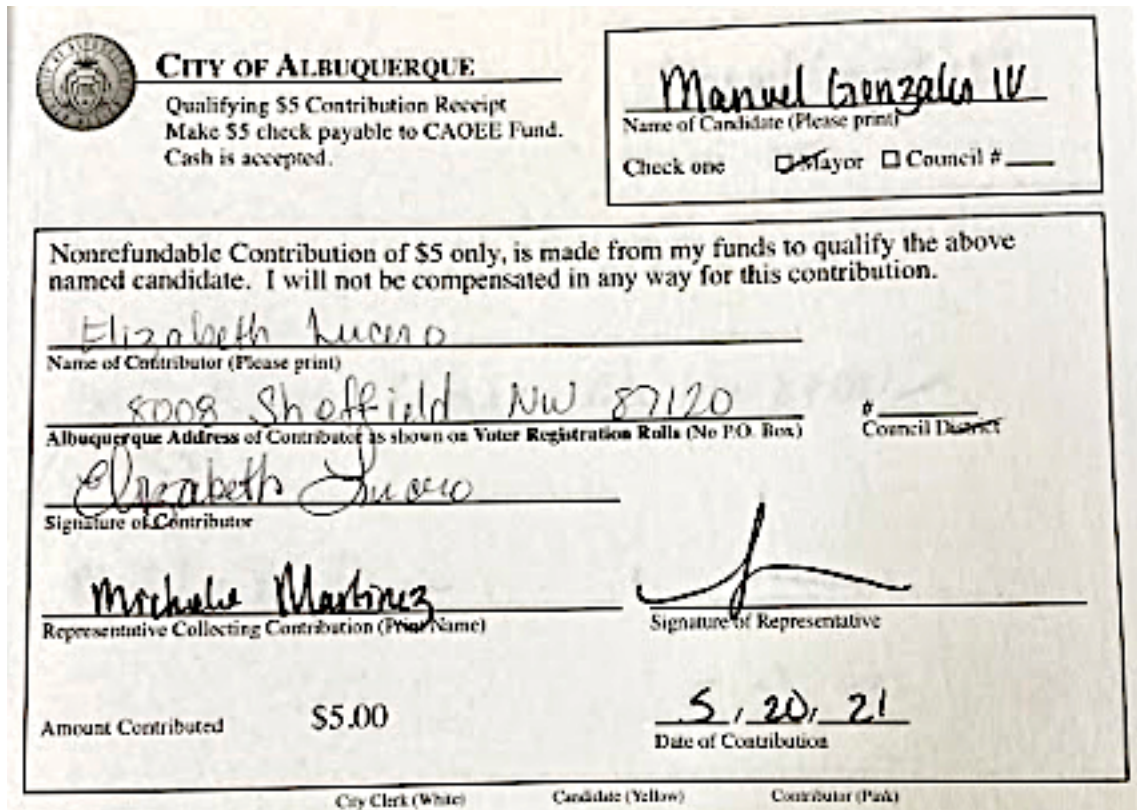 CITY OF ALBUQUERQUE
Qualifying $5 Contribution Receipt
Make $5 check payable to CAOEE Fund.
Cash is accepted.
Manuel Gonzales IV
Name of Candidate (Please print)
Check one Mayor Council #
Nonrefundable Contribution of $5 only, is made from my funds to qualify the above
named candidate. I will not be compensated in any way for this contribution.
Elizabeth Lucero
Name of Contributor (Please print)
8008 Sheffield NW 87120
#
Albuquerque Address of Contributor as shown on Voter Registration Rolls (No P.O. Box)
Council District
Elizabeth Lucero
Signature of Contributor
Michelle Martinez
Representative Collecting Contribution (Print Name)
Signature of Representative
Amount Contributed $5.00
5, 20, 21
Date of Contribution
City Clerk (White) Candidate (Yellow) Contributor (Pink)